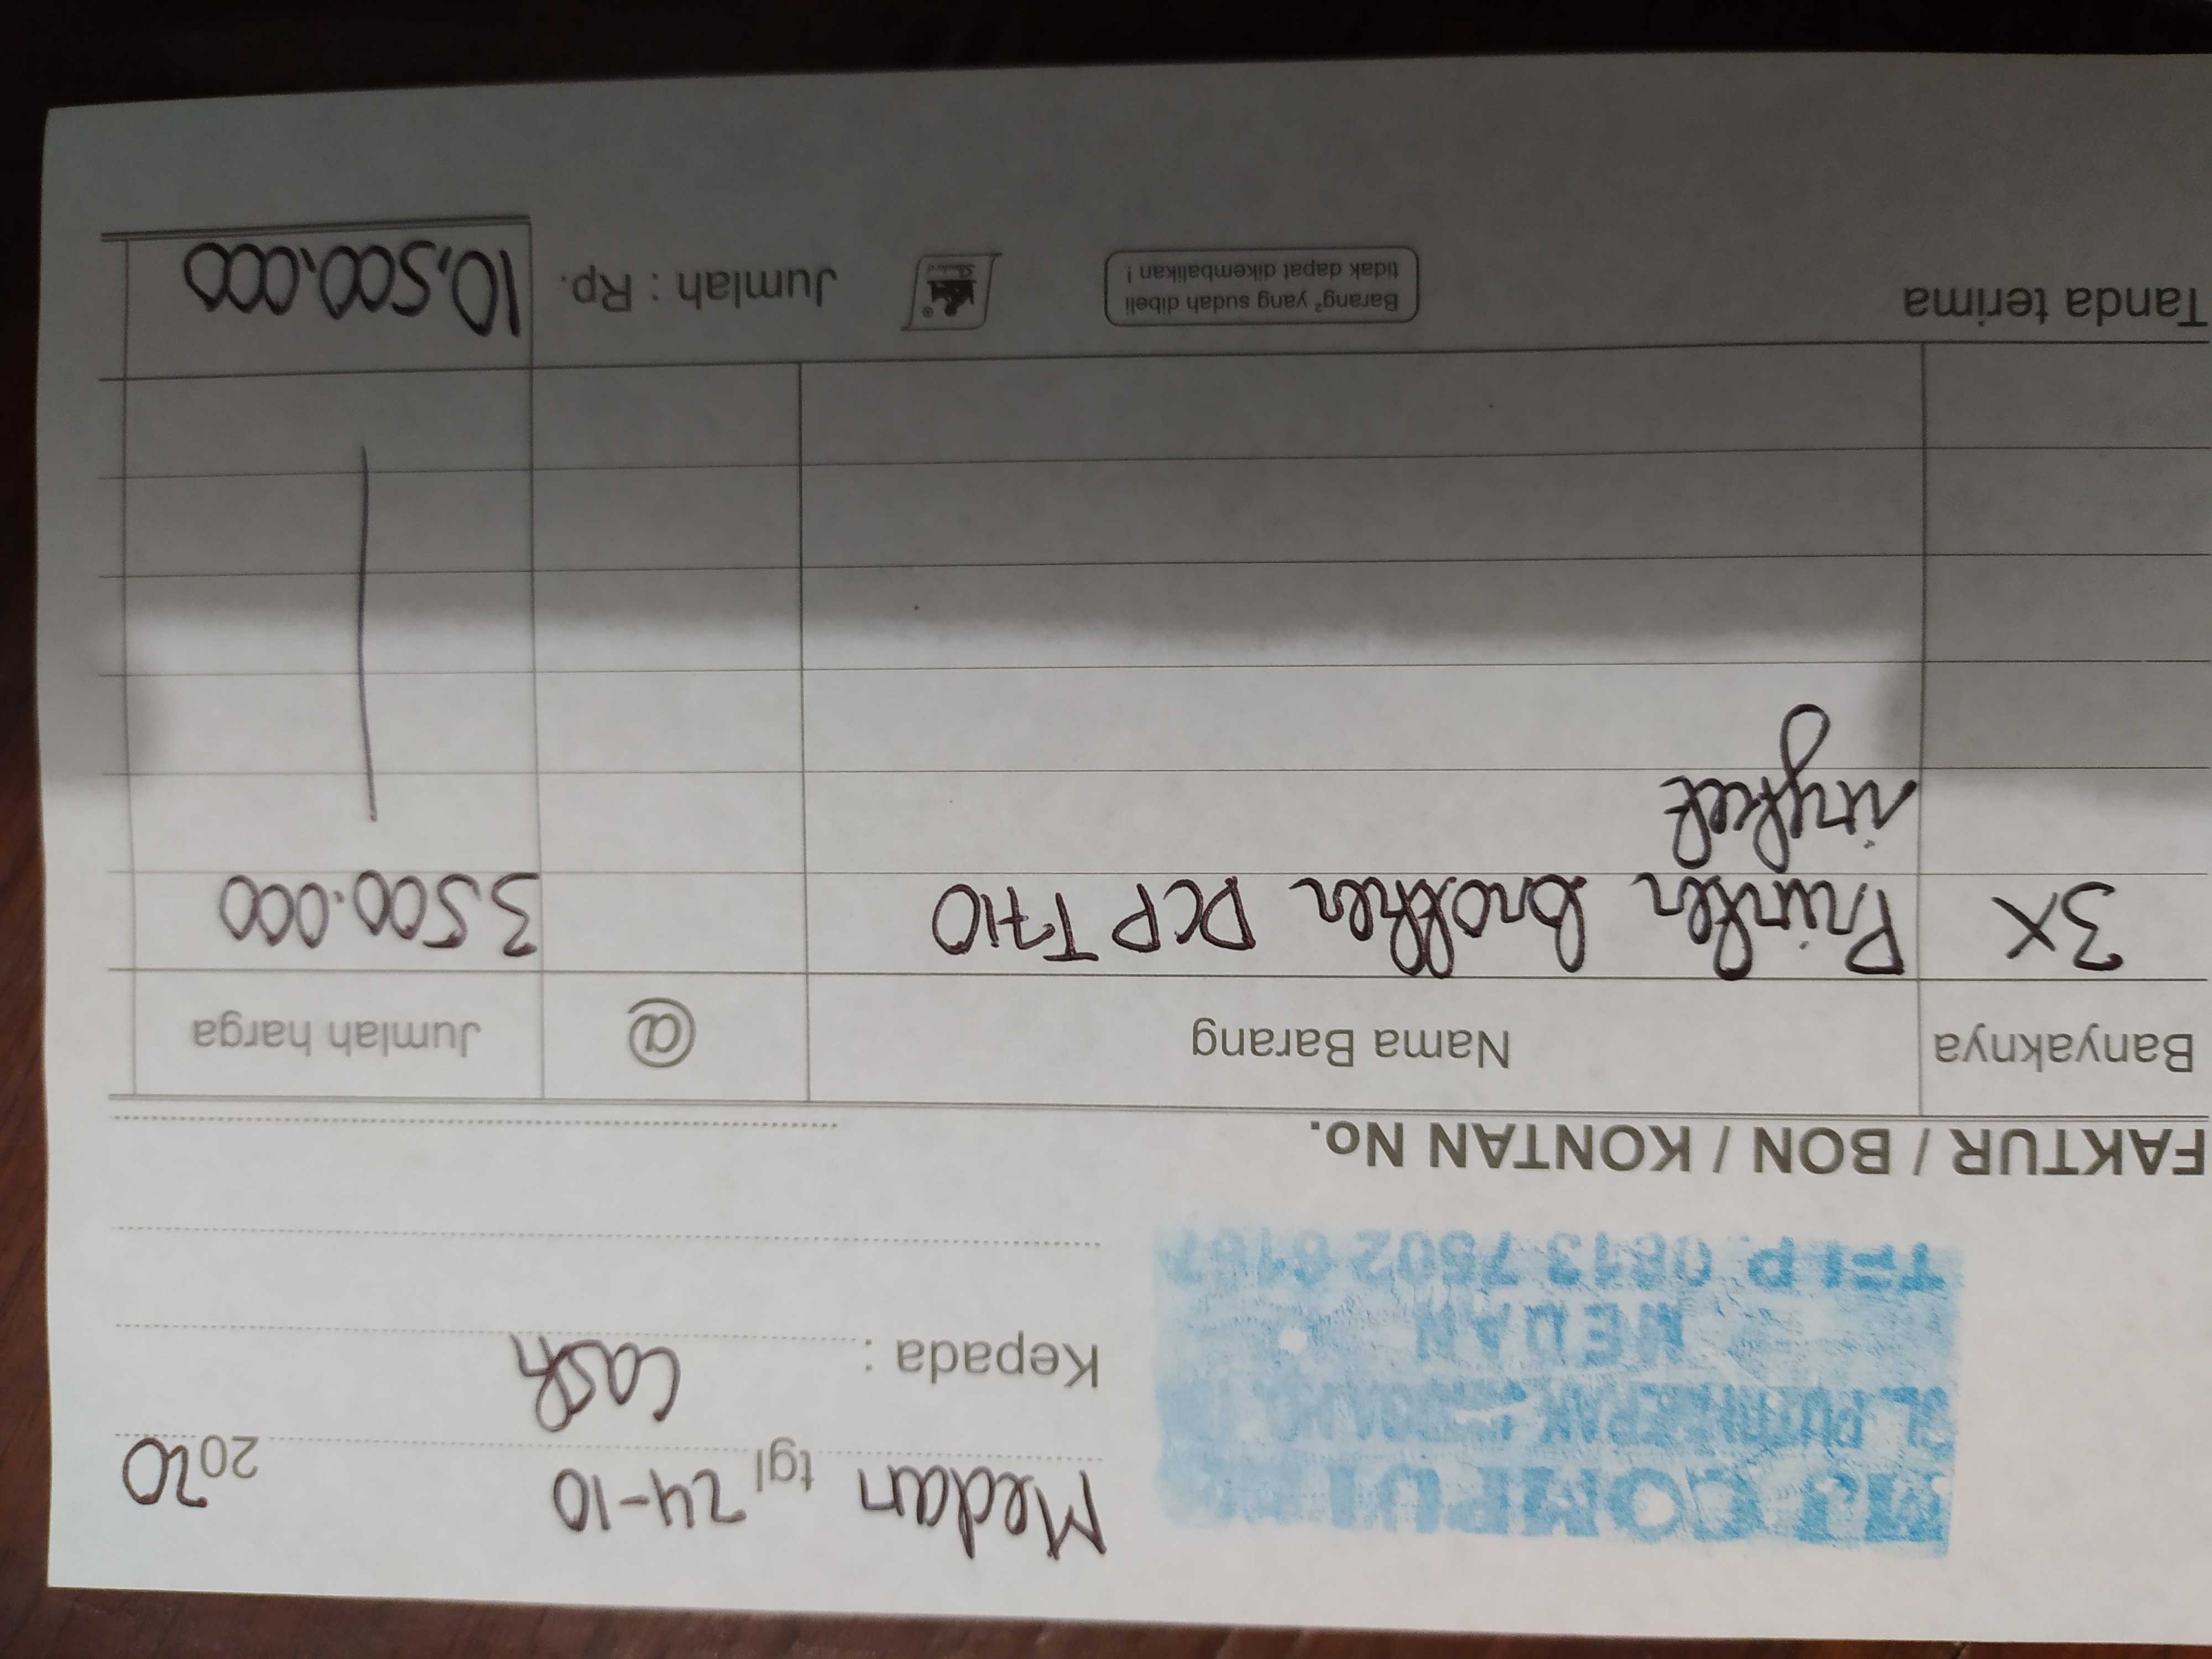 MJ COMPUT
MEDAN
TELP 0813 7502 6167
Medan tgl 24-10 2020
Kepada : Cash
FAKTUR / BON / KONTAN No.
Banyaknya Nama Barang @ Jumlah harga
3x Printer brother DCP T710 3.500.000
inkjet
Tanda terima
Barang² yang sudah dibeli
tidak dapat dikembalikan !
Jumlah : Rp. 10,500.000